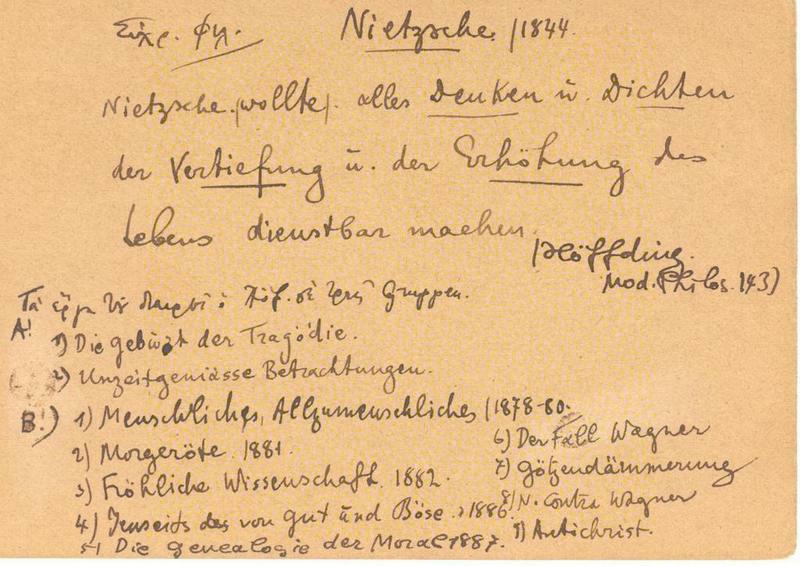 Σύχρ. Φιλ. Nietzsche /1844.
Nietzsche (wollte) alles Denken u. Dichten
der Vertiefung u. der Erhöhung des
Lebens dienstbar machen.
(Höffding.
Mod. Philos. 143)
Τά έργα τὸν ὁ Χόφ. σὲ τρεῖς Gruppen.
A! 1) Die geburt der Tragödie.
2) Unzeitgemässe Betrachtungen.
B!) 1) Menschliches, Allzumenschliches (1878-80.
2) Morgeröte. 1881.
3) Fröhliche Wissenschaft. 1882.
4) Jenseits des von gut und Böse. 1886.
5) Die genealogie der Moral 1887.
6) Der Fall Wagner
7) götzendämmerung
8) N. contra Wagner
9) Antichrist.